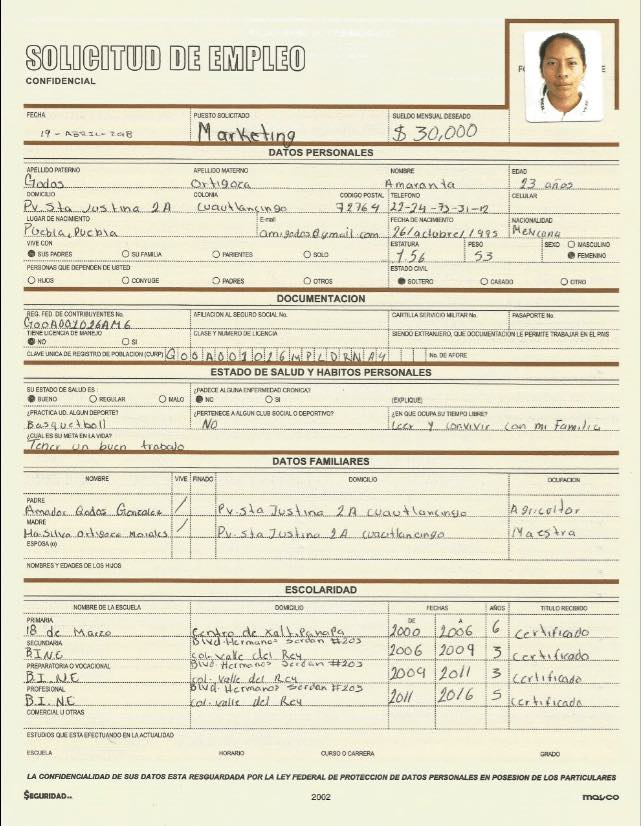 SOLICITUD DE EMPLEO
CONFIDENCIAL
FECHA PUESTO SOLICITADO SUELDO MENSUAL DESEADO
19 - ABRIL - 2018 Marketing $ 30,000
DATOS PERSONALES
APELLIDO PATERNO APELLIDO MATERNO NOMBRE EDAD
Godos Ortigoza Amaranta 23 años
DOMICILIO COLONIA CODIGO POSTAL TELEFONO CELULAR
Pv. Sta Justina 2A Cuautlancingo 72764 22-24-73-31-12
LUGAR DE NACIMIENTO E-mail FECHA DE NACIMIENTO NACIONALIDAD
Puebla, Puebla amigodos@gmail.com 26/octubre/1995 Mexicana
VIVE CON ESTATURA PESO SEXO MASCULINO
SUS PADRES SU FAMILIA PARIENTES SOLO 1.56 53 FEMENINO
PERSONAS QUE DEPENDEN DE USTED ESTADO CIVIL
HIJOS CONYUGE PADRES OTROS SOLTERO CASADO OTRO
DOCUMENTACION
REG. FED. DE CONTRIBUYENTES No. AFILIACION AL SEGURO SOCIAL No. CARTILLA SERVICIO MILITAR No. PASAPORTE No.
GOOA001026AM6
TIENE LICENCIA DE MANEJO CLASE Y NUMERO DE LICENCIA SIENDO EXTRANJERO, QUE DOCUMENTACION LE PERMITE TRABAJAR EN EL PAIS
NO SI
CLAVE UNICA DE REGISTRO DE POBLACION (CURP) GOOA001026MPLDRNA4 No. DE AFORE
ESTADO DE SALUD Y HABITOS PERSONALES
SU ESTADO DE SALUD ES : ¿PADECE ALGUNA ENFERMEDAD CRONICA?
BUENO REGULAR MALO NO SI (EXPLIQUE)
¿PRACTICA UD. ALGUN DEPORTE? ¿PERTENECE A ALGUN CLUB SOCIAL O DEPORTIVO? ¿EN QUE OCUPA SU TIEMPO LIBRE?
Basquetball NO Leer y convivir con mi Familia
¿CUAL ES SU META EN LA VIDA?
Tener un buen trabajo
DATOS FAMILIARES
NOMBRE VIVE FINADO DOMICILIO OCUPACION
PADRE
Amador Godos Gonzalez / Pv. Sta Justina 2A cuautlancingo Agricultor
MADRE
Ma. Silvia Ortigoza Morales / Pv. Sta Justina 2A cuautlancingo Maestra
ESPOSA (o)
NOMBRES Y EDADES DE LOS HIJOS
ESCOLARIDAD
NOMBRE DE LA ESCUELA DOMICILIO FECHAS AÑOS TITULO RECIBIDO
PRIMARIA DE A
18 de Marzo Centro de Xaltipanapa 2000 2006 6 Certificado
SECUNDARIA Blvd. Hermanos Serdan #203
B.I.N.E col. valle del Rey 2006 2009 3 Certificado
PREPARATORIA O VOCACIONAL Blvd. Hermanos Serdan #203
B.I.N.E col. valle del Rey 2009 2011 3 Certificado
PROFESIONAL Blvd. Hermanos Serdan #203
B.I.N.E col. valle del Rey 2011 2016 5 Certificado
COMERCIAL U OTRAS
ESTUDIOS QUE ESTA EFECTUANDO EN LA ACTUALIDAD
ESCUELA HORARIO CURSO O CARRERA GRADO
LA CONFIDENCIALIDAD DE SUS DATOS ESTA RESGUARDADA POR LA LEY FEDERAL DE PROTECCION DE DATOS PERSONALES EN POSESION DE LOS PARTICULARES
SEGURIDAD 2002